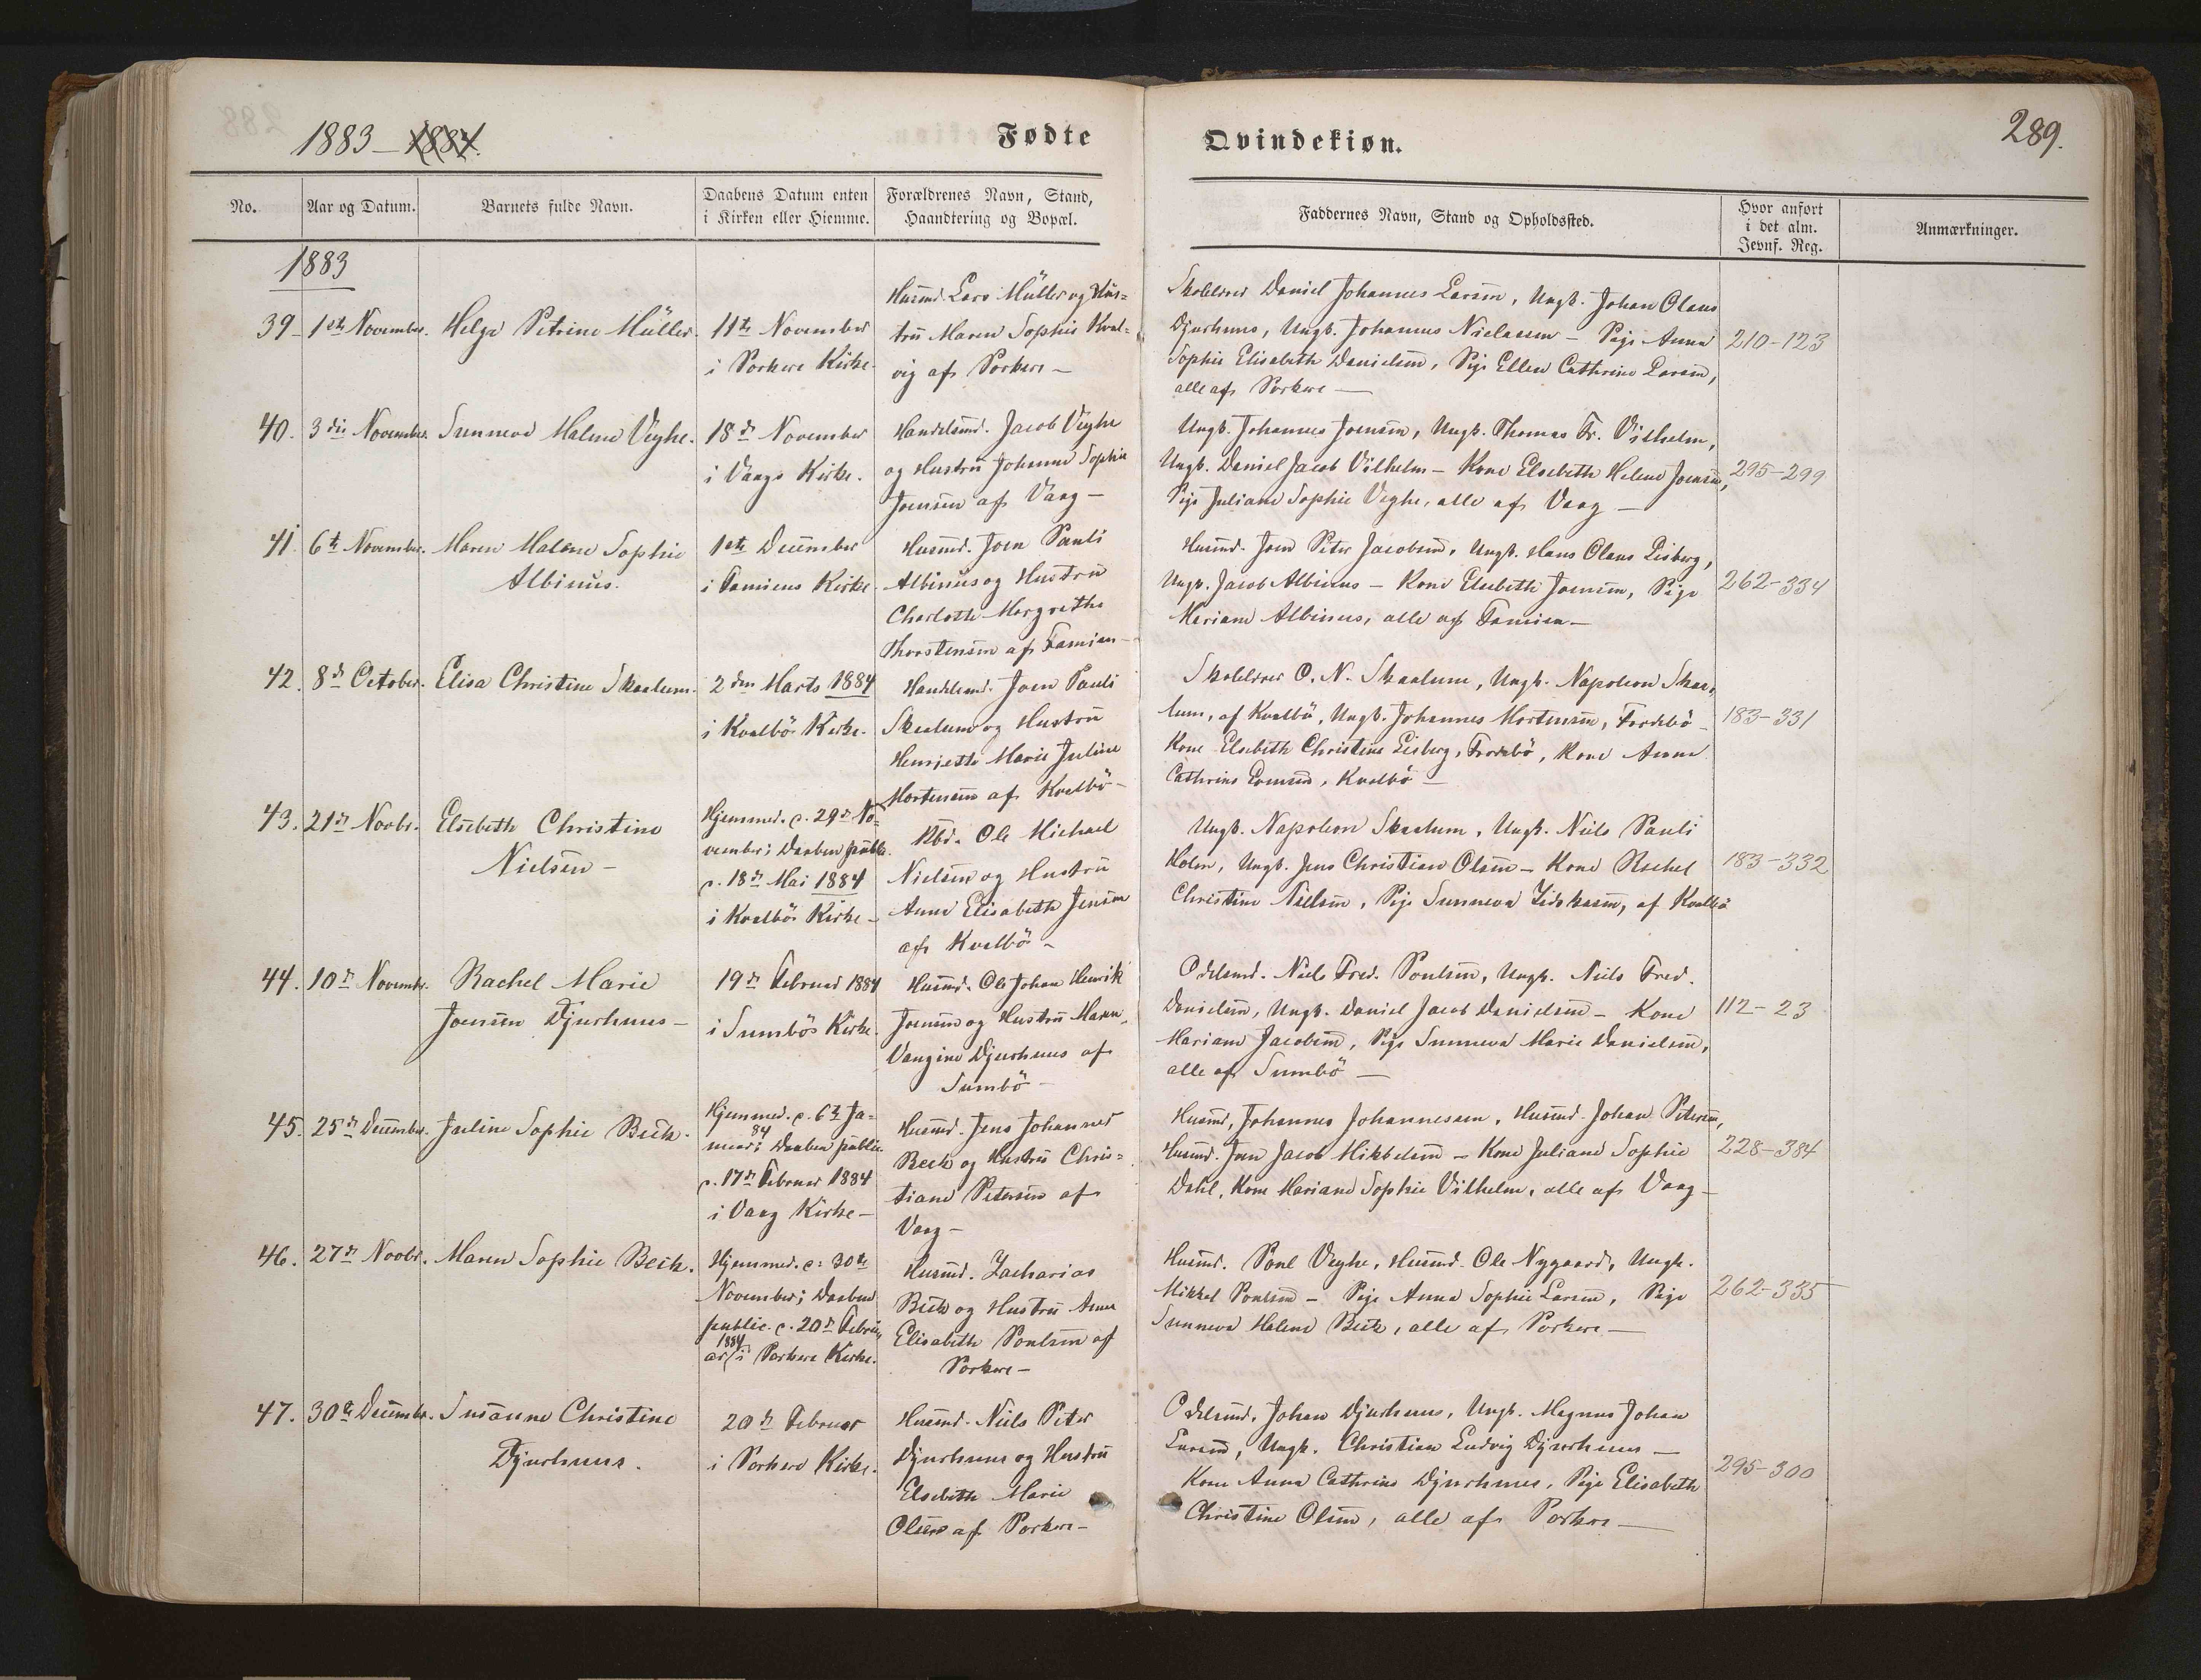 1883 – 1884.
Fødte
Qvindekiøn.
289.
No.
Aar og Datum.
Barnets fulde Navn.
Daabens Datum enten
i Kirken eller Hiemme.
Forældrenes Navn, Stand,
Haandtering og Bopæl.
Faddernes Navn, Stand og Opholdssted.
Hvor anført
i det alm.
Jevnf. Reg.
Anmærkninger.
1883
39 –
1ste November.
Helga Petrine Müller.
11te November
i Porkere Kirke.
Husmd. Lars Müller og Hus=
tru Maren Sophie Kval=
vig af Porkere –
Skolelærer Daniel Johannes Larsen, Ungk. Johan Olaus
Djurhuus, Ungk. Johannes Nielassen – Pige Anna
Sophie Elisabeth Danielsen, Pige Ellen Cathrine Larsen,
alle af Porkere –
210–123
40.
3die November.
Sunneva Malene Veyhe.
18de November
i Vaags Kirke.
Handelsmd. Jacob Veyhe
og Hustru Johanne Sophie
Joensen af Vaag –
Ungk. Johannes Joensen, Ungk. Thomas Fr. Vilhelm,
Ungk. Daniel Jacob Vilhelm – Kone Elsebeth Helene Joensen,
Pige Juliane Sophie Veyhe, alle af Vaag –
295–299
41.
6te November.
Maren Malene Sophie
Albinus.
1ste December
i Famiens Kirke.
Husmd. Joen Pauli
Albinus og Hustru
Charlotte Margrethe
Thorstensen af Famien –
Husmd. Joen Peter Jacobsen, Ungk. Hans Olaus Lisberg,
Ungk. Jacob Albinus – Kone Elsebeth Joensen, Pige
Mariane Albinus, alle af Famien –
262–334
42.
8de October.
Elisa Christine Skaalum.
2den Marts 1884
i Kvalbö Kirke.
Handelsmd. Joen Pauli
Skaalum og Hustru
Henriette Marie Juline
Mortensen af Kvalbö –
Skolelærer O. N. Skaalum, Ungk. Napoleon Skaa=
lum, af Kvalbö, Ungk. Johannes Mortensen, Frodebö –
Kone Elsebeth Christine Lisberg, Frodebö, Kone Anna
Cathrine, Kvalbö –
183–331
43.
21de Novbr.
Elsebeth Christine
Nielsen –
Hjemmed. d. 29de No=
vember; Daaben publ.
d. 18de Mai 1884
i Kvalbö Kirke –
Ole Michael
Nielsen og Hustru
Anna Elisabeth Jensen
af Kvalbö –
Ungk. Napoleon Skaalum, Ungk. Niels Pauli
Holm, Ungk. Jens Christian Olsen – Kone Rachel
Christine Nielsen, Pige Sunneva, af Kvalbö
183–332
44.
10de Novembr.
Rachel Marie
Joensen Djurhuus –
19de Februar 1884
i Sumbös Kirke.
Husmd. Ole Johan Henrik
Joensen og Hustru Maren
Vangine Djurhuus af
Sumbö –
Odelsmd. Niels Fred. Poulsen, Ungk. Niels Fred.
Danielsen, Ungk. Daniel Jacob Danielsen – Kone
Mariane Jacobsen, Pige Sunneva Marie Danielsen,
alle af Sumbö –
112–23
45.
25de Decembr.
Juline Sophie Beck.
Hjemmed. d. 6te Ja=
nuar 84; Daaben public.
d. 17de Februar 1884
i Vaag Kirke –
Husmd. Jens Johannes
Beck og Hustru Chris=
tiane Petersen af
Vaag –
Husmd, Johannes Johannesen, Husmd. Johan Petersen,
Husmd. Joen Jacob Mikkelsen – Kone Juliane Sophie
Dahl, Kone Mariane Sophie Vilhelm, alle af Vaag –
228–384
46.
27de Novbr.
Maren Sophie Beck.
Hjemmed. d: 30te
November; Daaben
public. d. 20de Febru=
ar 1884 i Porkere Kirke.
Husmd. Zacharias
Beck og Hustru Anna
Elisabeth Poulsen af
Porkere –
Husmd. Poul Veyhe, Husmd. Ole Nygaard, Ungk.
Mikkel Poulsen – Pige Anna Sophie Larsen, Pige
Sunneva Helene Beck, alle af Porkere –
262–335
47.
30te Decembr.
Susanne Christine
Djurhuus.
20de Februar
i Porkere Kirke.
Husmd. Niels Peter
Djurhuus og Hustru
Elsebeth Marie
Olsen af Porkere –
Odelsmd. Johan Djurhuus, Ungk. Magnus Johan
Larsen, Ungk. Christian Ludvig Djurhuus –
Kone Anna Cathrine Djurhuus, Pige Elisabeth
Christine Olsen, alle af Porkere –
295–300